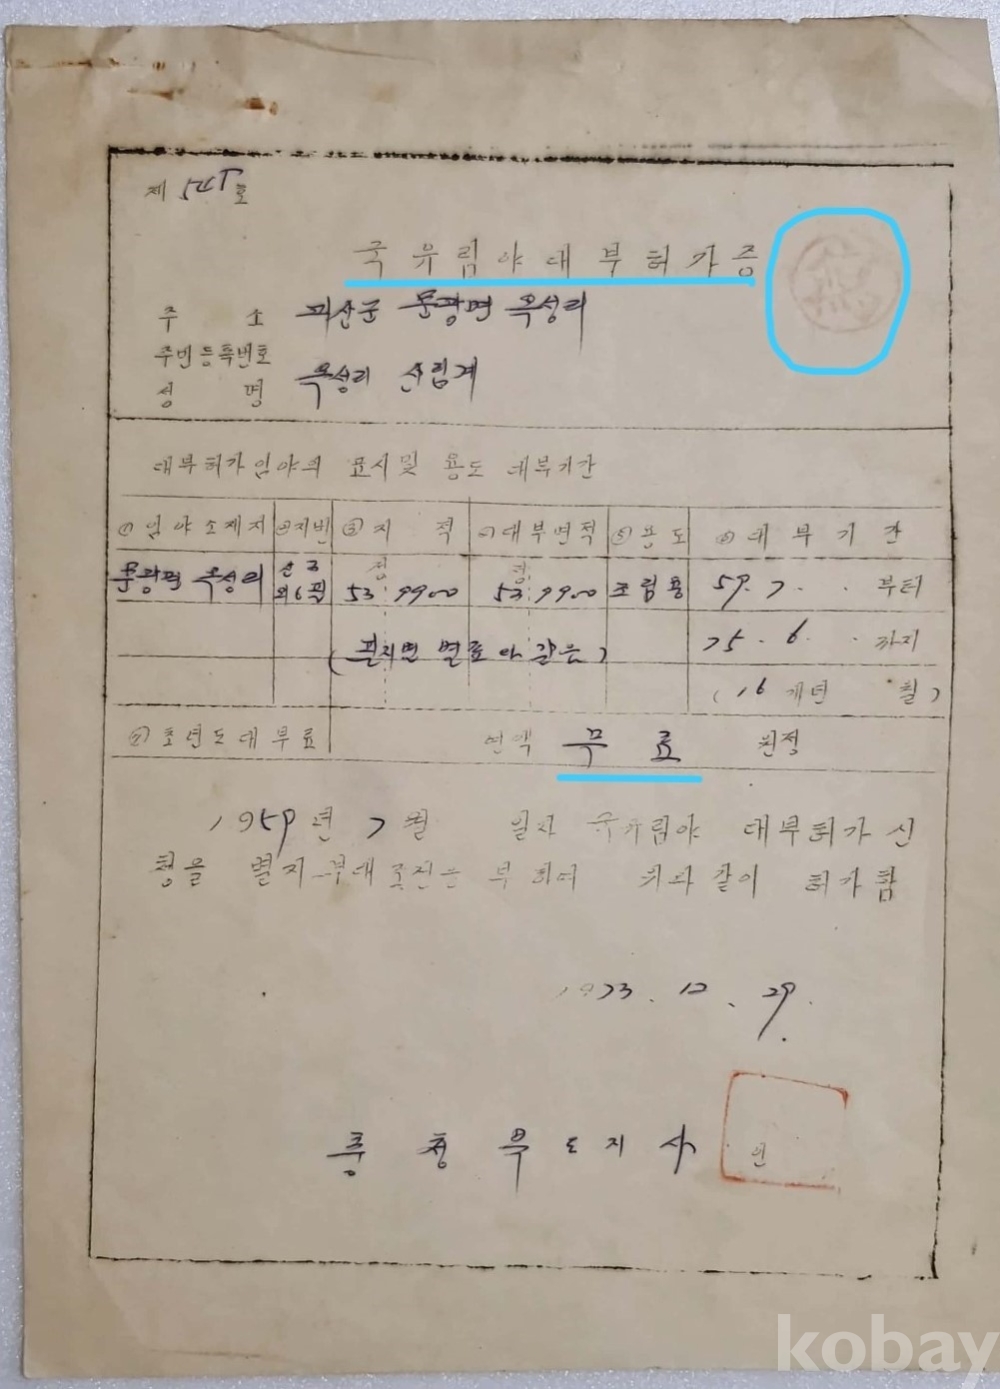 제 호
국유림야대부허가증
주 소 괴산군 문광면 옥성리
주민등록번호
성 명 옥성리 산림계
대부허가임야의 표시및 용도 대부기간
①임야소재지 ②지번 ③지 적 ④대부면적 ⑤용도 ⑥대부기간
문광면 옥성리 산3 외6필 정 53 9900 정 53 9900 조림용 59. 7 . . 부터
(필지면 별표와 같음) 75. 6 . 까지
(16개년 월)
⑦초년도대부료 연액 무료 원정
1959년 7월 일자 국유림야 대부허가신
청을 별지 부대조건을 부하여 위와같이 허가함
1973. 12. 29.
충청북도지사 인
kobay